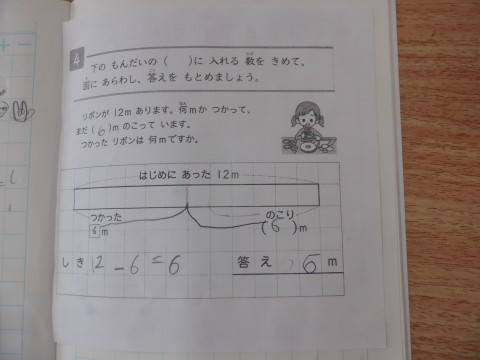 4
下の もんだいの （ ）に 入れる 数を きめて、
図に あらわし、答えを もとめましょう。
リボンが 12m あります。何mか つかって、
まだ（6）m のこって います。
つかった リボンは 何mですか。
はじめに あった 12m
つかった のこり
6m （6）m
しき 12－6＝6 答え 6 m